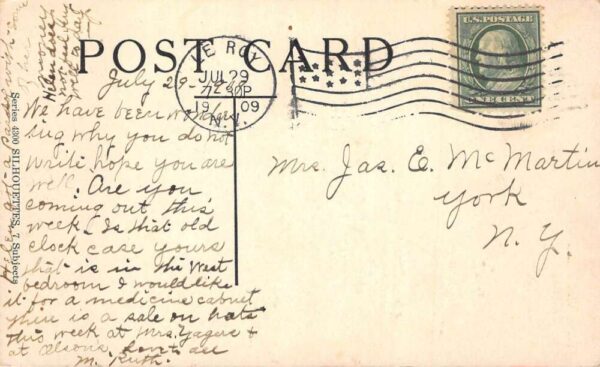 POST CARD
LE ROY
JUL 29
7 30P
1909
N.Y.
U.S. POSTAGE
ONE CENT
July 29-
We have been wonder
ing why you do not
write hope you are
well. Are you
coming out this
week. Is that old
clock case yours
that is in the West
bedroom I would like
it for a medicine cabnet
thier is a sale on hats
this week at Mrs. Yagers +
at Olsons.
M. Ruth.
Mrs. Jas. E. McMartin
York
N. Y.
Series 4300 SILHOUETTES, 7 Subjects
Helen got a card